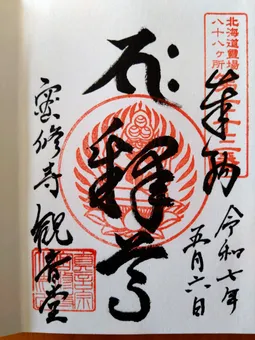 北海道靈場
八十八ヶ所
奉拝
令和七年
五月六日
釋尊
密修寺 観音堂